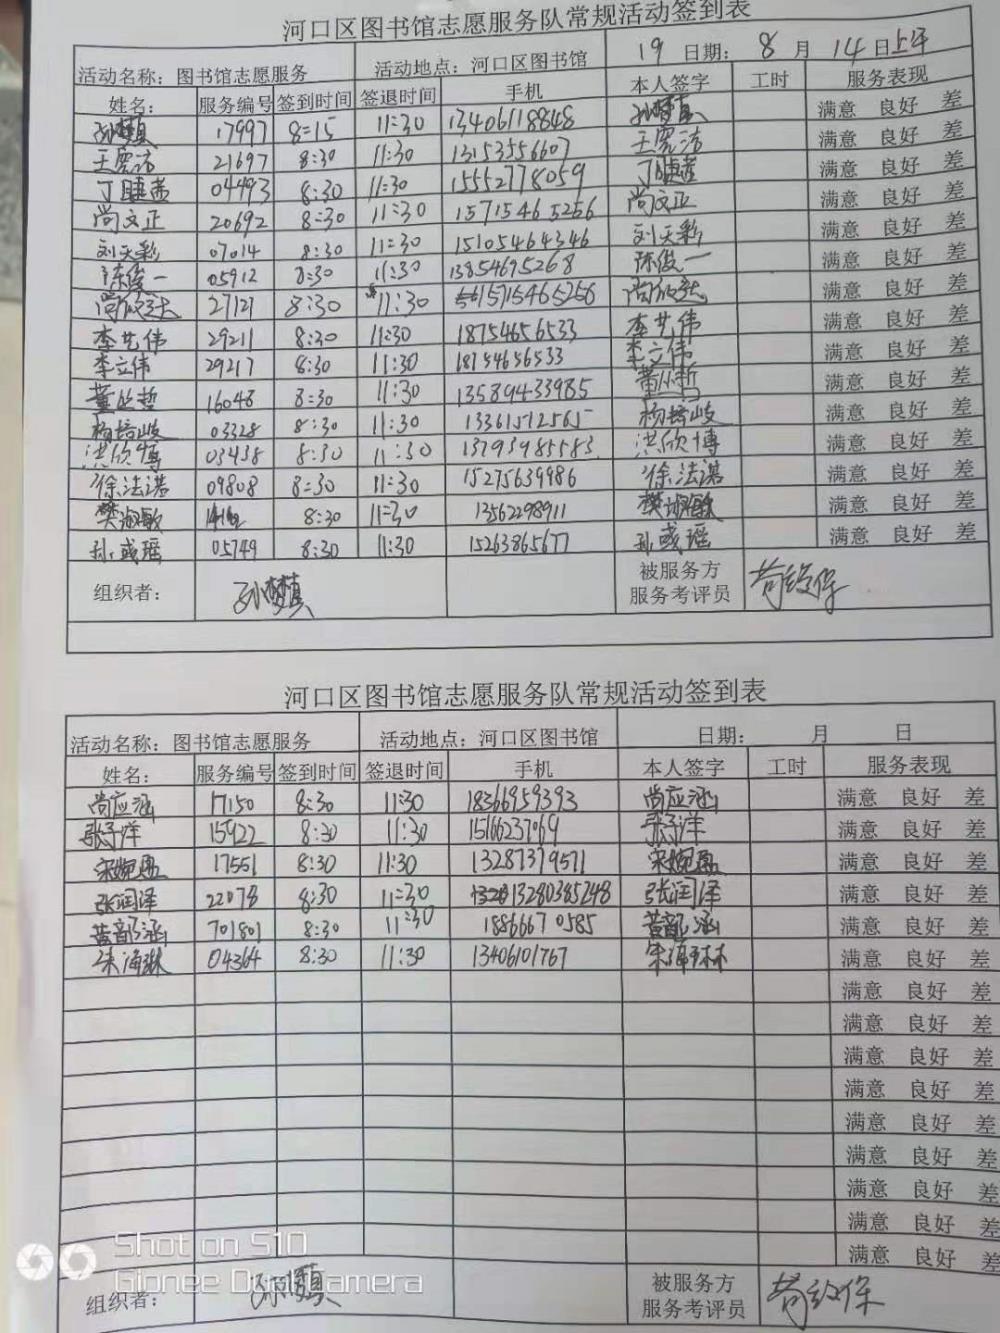 河口区图书馆志愿服务队常规活动签到表
活动名称：图书馆志愿服务 活动地点：河口区图书馆 19 日期：8 月 14 日上午
姓名： 服务编号 签到时间 签退时间 手机 本人签字 工时 服务表现
孙梦真 17997 8=15 11=30 13406118848 孙梦真 满意 良好 差
王宪洁 21697 8:30 11:30 13153556607 王宪洁 满意 良好 差
丁睫茜 04493 8:30 11:30 15552778059 丁睫茜 满意 良好 差
尚文正 20692 8=30 11=30 15715465256 尚文正 满意 良好 差
刘天彩 07014 8:30 11=30 15105464346 刘天彩 满意 良好 差
陈俊一 05912 8:30 11:30 13854695268 陈俊一 满意 良好 差
尚 27121 8:30 11:30 15715465256 尚 满意 良好 差
李艺伟 29211 8:30 11:30 18754656533 李艺伟 满意 良好 差
李立伟 29217 8:30 11:30 18754656533 李立伟 满意 良好 差
董丛哲 16048 8:30 11:30 13589433985 董丛哲 满意 良好 差
杨培峻 03328 8:30 11:30 13361512565 杨培峻 满意 良好 差
洪欣博 03438 8:30 11:30 13793985583 洪欣博 满意 良好 差
徐法谌 09808 8=30 11=30 15275639986 徐法谌 满意 良好 差
樊淑敏 8:30 11=30 13562298911 樊淑敏 满意 良好 差
孙彧瑶 05749 8:30 11:30 15263865677 孙彧瑶 满意 良好 差
组织者： 孙梦真 被服务方
服务考评员
河口区图书馆志愿服务队常规活动签到表
活动名称：图书馆志愿服务 活动地点：河口区图书馆 日期： 月 日
姓名： 服务编号 签到时间 签退时间 手机 本人签字 工时 服务表现
尚应涵 17150 8:30 11:30 18366959393 尚应涵 满意 良好 差
张予洋 15922 8:30 11:30 15166237069 张予洋 满意 良好 差
宋婉盈 17551 8:30 11:30 13287379571 宋婉盈 满意 良好 差
张润泽 22078 8:30 11=30 13280385248 张润泽 满意 良好 差
黄韵涵 701801 8:30 11:30 18866670585 黄韵涵 满意 良好 差
朱海琳 04364 8:30 11:30 13406101767 朱海琳 满意 良好 差
满意 良好 差
满意 良好 差
满意 良好 差
满意 良好 差
满意 良好 差
满意 良好 差
满意 良好 差
满意 良好 差
满意 良好 差
组织者： 孙梦真 被服务方
服务考评员
Shot on S10
Gionee Dual Camera